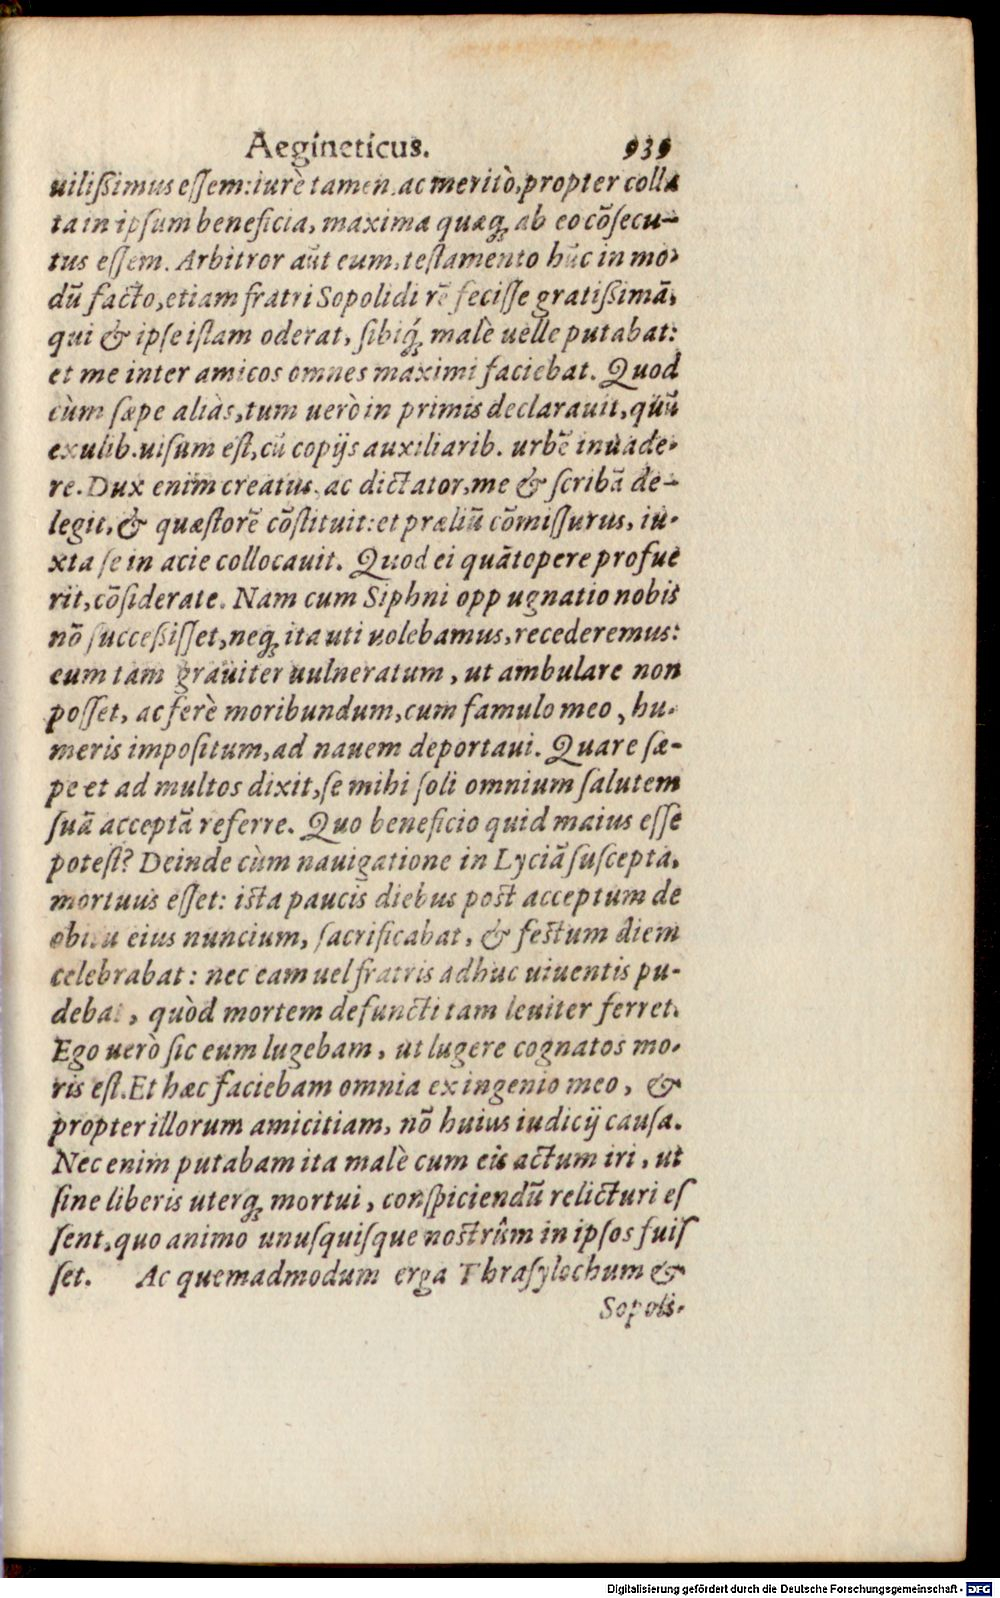 Aegineticus. 939
uiliſsimus eſſem: iurè tamen. ac meritò, propter colla
ta in ipſum beneficia, maxima quæq; ab eo cõſecu-
tus eſſem. Arbitror aũt eum, teſtamento hũc in mo-
dũ facto, etiam fratri Sopolidi rẽ feciſſe gratiſsimã,
qui & ipſe iſtam oderat, ſibiq́; malè uelle putabat:
et me inter amicos omnes maximi faciebat. Quod
cùm ſæpe aliàs, tum uerò in primis declarauit, quũ
exulib. uiſum eſt, cũ copijs auxiliarib. urbẽ inuade-
re. Dux enim creatus, ac dictator, me & ſcribã de-
legit, & quæſtorẽ cõſtituit: et præliũ cõmiſſurus, iu-
xta ſe in acie collocauit. Quod ei quãtopere profue
rit, cõſiderate. Nam cum Siphni oppugnatio nobis
nõ ſucceſsiſſet, neq; ita uti uolebamus, recederemus:
eum tam grauiter uulneratum, ut ambulare non
poſſet, ac ferè moribundum, cum famulo meo, hu-
meris impoſitum, ad nauem deportaui. Quare ſæ-
pe et ad multos dixit, ſe mihi ſoli omnium ſalutem
ſuã acceptã referre. Quo beneficio quid maius eſſe
poteſt? Deinde cùm nauigatione in Lyciã ſuſcepta,
mortuus eſſet: iſta paucis diebus poſt acceptum de
obitu eius nuncium, ſacrificabat, & feſtum diem
celebrabat: nec eam uel fratris adhuc uiuentis pu-
debat, quòd mortem defuncti tam leuiter ferret.
Ego uerò ſic eum lugebam, ut lugere cognatos mo-
ris eſt. Et hæc faciebam omnia ex ingenio meo, &
propter illorum amicitiam, nõ huius iudicij cauſa.
Nec enim putabam ita malè cum eis actum iri, ut
ſine liberis uterq; mortui, conſpiciendũ relicturi eſ
ſent, quo animo unuſquiſque noſtrûm in ipſos fuiſ
ſet. Ac quemadmodum erga Thraſylochum &
Sopolis-
Digitalisierung gefördert durch die Deutsche Forschungsgemeinschaft - DFG